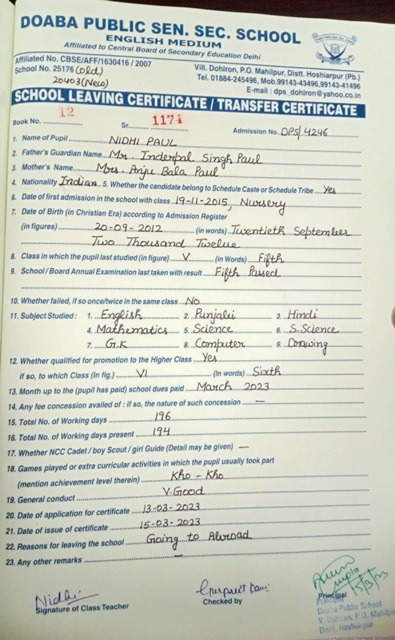 DOABA PUBLIC SEN. SEC. SCHOOL
ENGLISH MEDIUM
Affiliated to Central Board of Secondary Education Delhi
Affiliated No. CBSE/AFF/1630416 / 2007
School No. 25176 (old)
20403 (New)
Vill. Dohlron, P.O. Mahilpur, Distt. Hoshiarpur (Pb.)
Tel. 01884-245496, Mob.99143-43496,91496
E-mail : dps_dohlron@yahoo.co.in
SCHOOL LEAVING CERTIFICATE / TRANSFER CERTIFICATE
Book No. 12 Sr. 1174 Admission No. DPS/4246
1. Name of Pupil NIDHI PAUL
2. Father's Guardian Name Mr. Inderpal Singh Paul
3. Mother's Name Mrs. Anju Bala Paul
4. Nationality Indian 5. Whether the candidate belong to Schedule Caste or Schedule Tribe Yes
6. Date of first admission in the school with class 19-11-2015, Nursery
7. Date of Birth (in Christian Era) according to Admission Register
(in figures) 20-09-2012 (in words) Twentieth September
Two Thousand Twelve
8. Class in which the pupil last studied (in figure) V (in Words) Fifth
9. School / Board Annual Examination last taken with result Fifth Passed
10. Whether failed, if so once/twice in the same class No
11. Subject Studied : 1. English 2. Punjabi 3. Hindi
4. Mathematics 5. Science 6. S.Science
7. G.K 8. Computer 9. Drawing
12. Whether qualified for promotion to the Higher Class Yes
if so, to which Class (In fig.) VI (In words) Sixth
13. Month up to the (pupil has paid) school dues paid March 2023
14. Any fee concession availed of : if so, the nature of such concession —
15. Total No. of Working days 196
16. Total No. of Working days present 194
17. Whether NCC Cadet / boy Scout / girl Guide (Detail may be given) —
18. Games played or extra curricular activities in which the pupil usually took part
(mention achievement level therein) Kho - Kho
19. General conduct V.Good
20. Date of application for certificate 13-03-2023
21. Date of issue of certificate 15-03-2023
22. Reasons for leaving the school Going to Abroad
23. Any other remarks —
Nidhi
Signature of Class Teacher
Gurpreet
Checked by
15/3/23
Principal
Doaba Public School
V. Dohlron, P.O. Mahilpur
Distt. Hoshiarpur